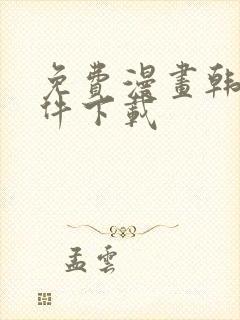 免費漫畫韩
件下載
孟雲